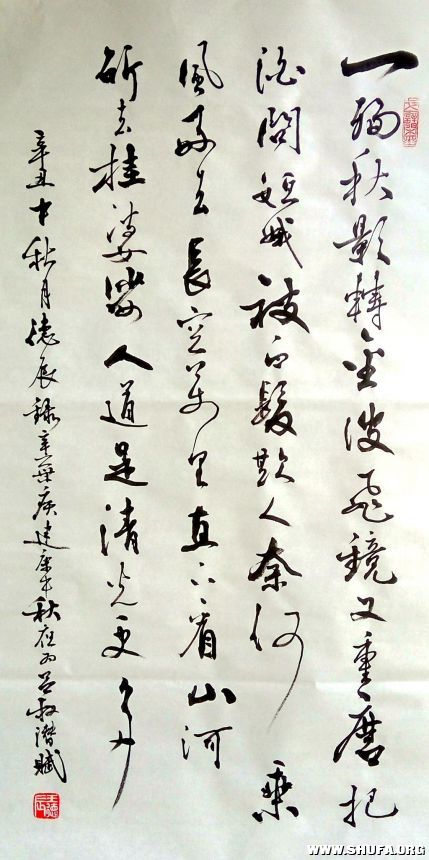 一輪秋影轉金波飛鏡又重磨把
酒問姮娥被白髮欺人奈何 乘
風好去長空萬里直下看山河
斫去桂婆娑人道是清光更多
辛丑中秋月德辰錄辛棄疾建康中秋夜为吕叔潛賦
WWW.SHUFA.ORG